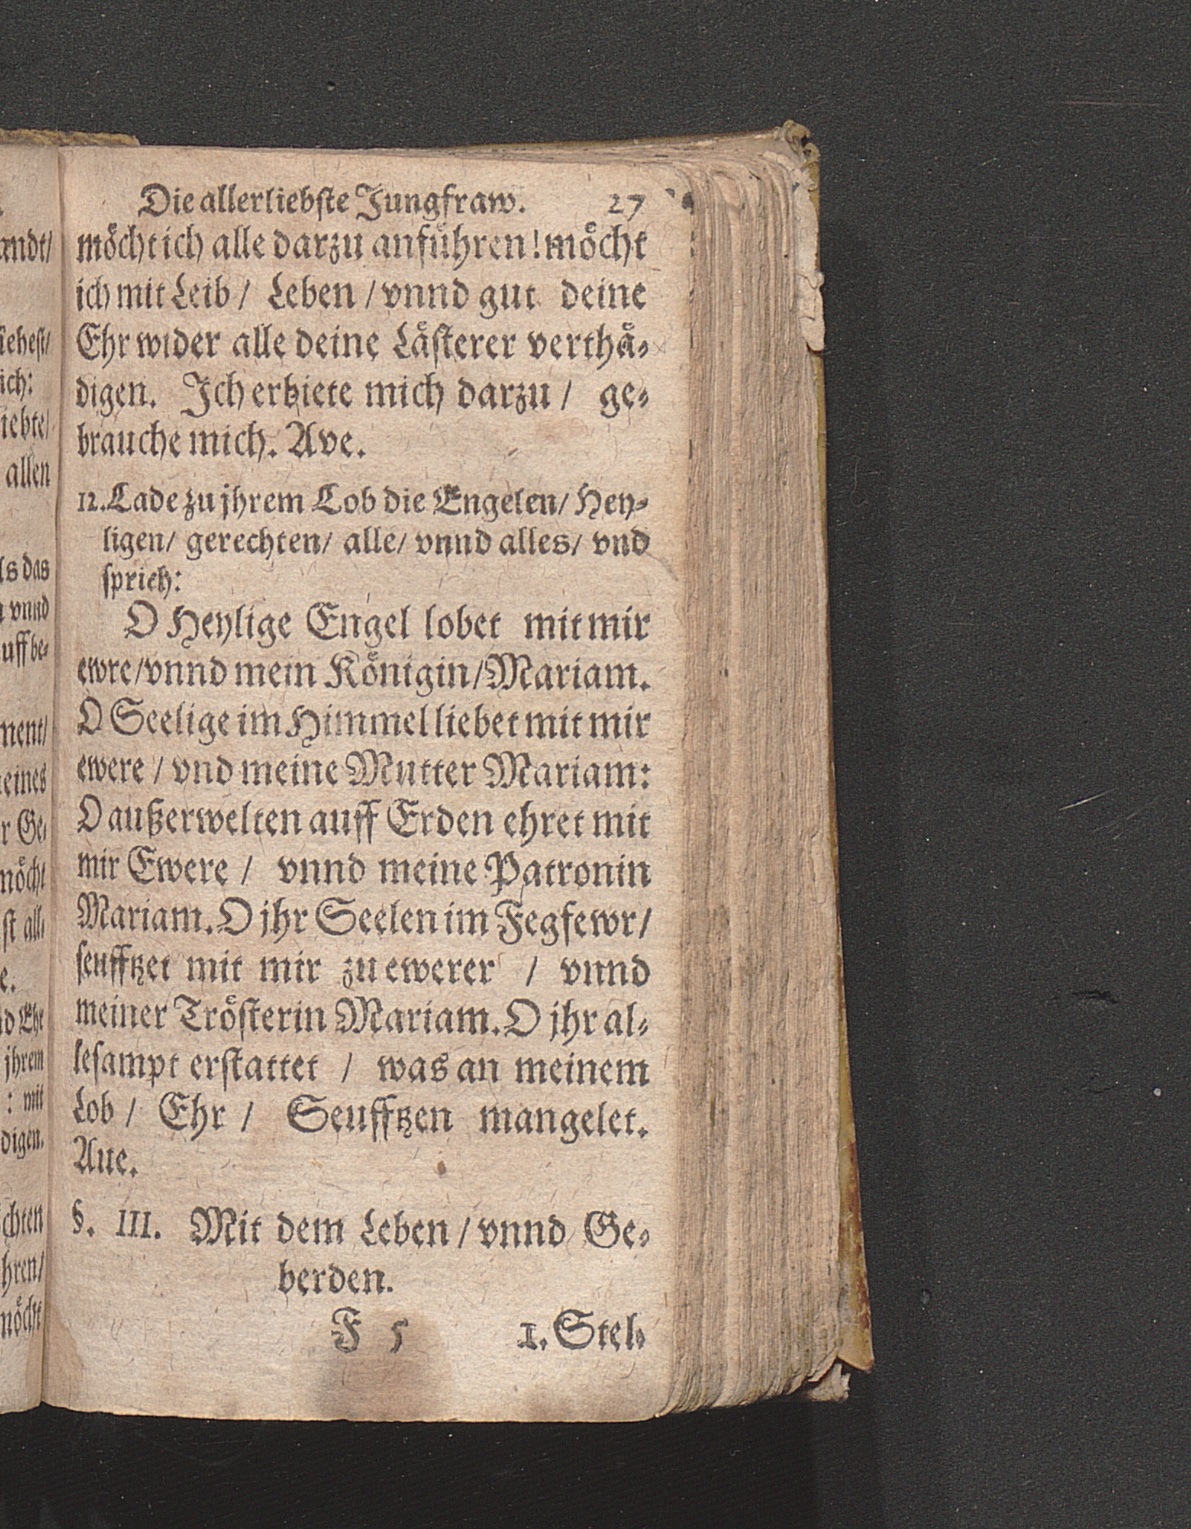 Die allerliebste Jungfraw. 27
möcht ich alle darzu anführen! möcht
ich mit Leib / Leben / vnnd gut deine
Ehr wider alle deine Lästerer verthä-
digen. Ich erbiete mich darzu / ge-
brauche mich. Ave.
12. Lade zu jhrem Lob die Engelen / Hey-
ligen / gerechten / alle / vnnd alles / vnd
sprich:
O Heylige Engel lobet mit mir
ewre / vnnd mein Königin / Mariam.
O Seelige im Himmel liebet mit mir
ewere / vnd meine Mutter Mariam:
O außerwelten auff Erden ehret mit
mir Ewere / vnnd meine Patronin
Mariam. O jhr Seelen im Fegfewr /
seufftzet mit mir zu ewerer / vnnd
meiner Trösterin Mariam. O jhr al-
lesampt erstattet / was an meinem
Lob / Ehr / Seufftzen mangelet.
Aue.
§. III. Mit dem Leben / vnnd Ge-
berden.
F 5 1. Stel-